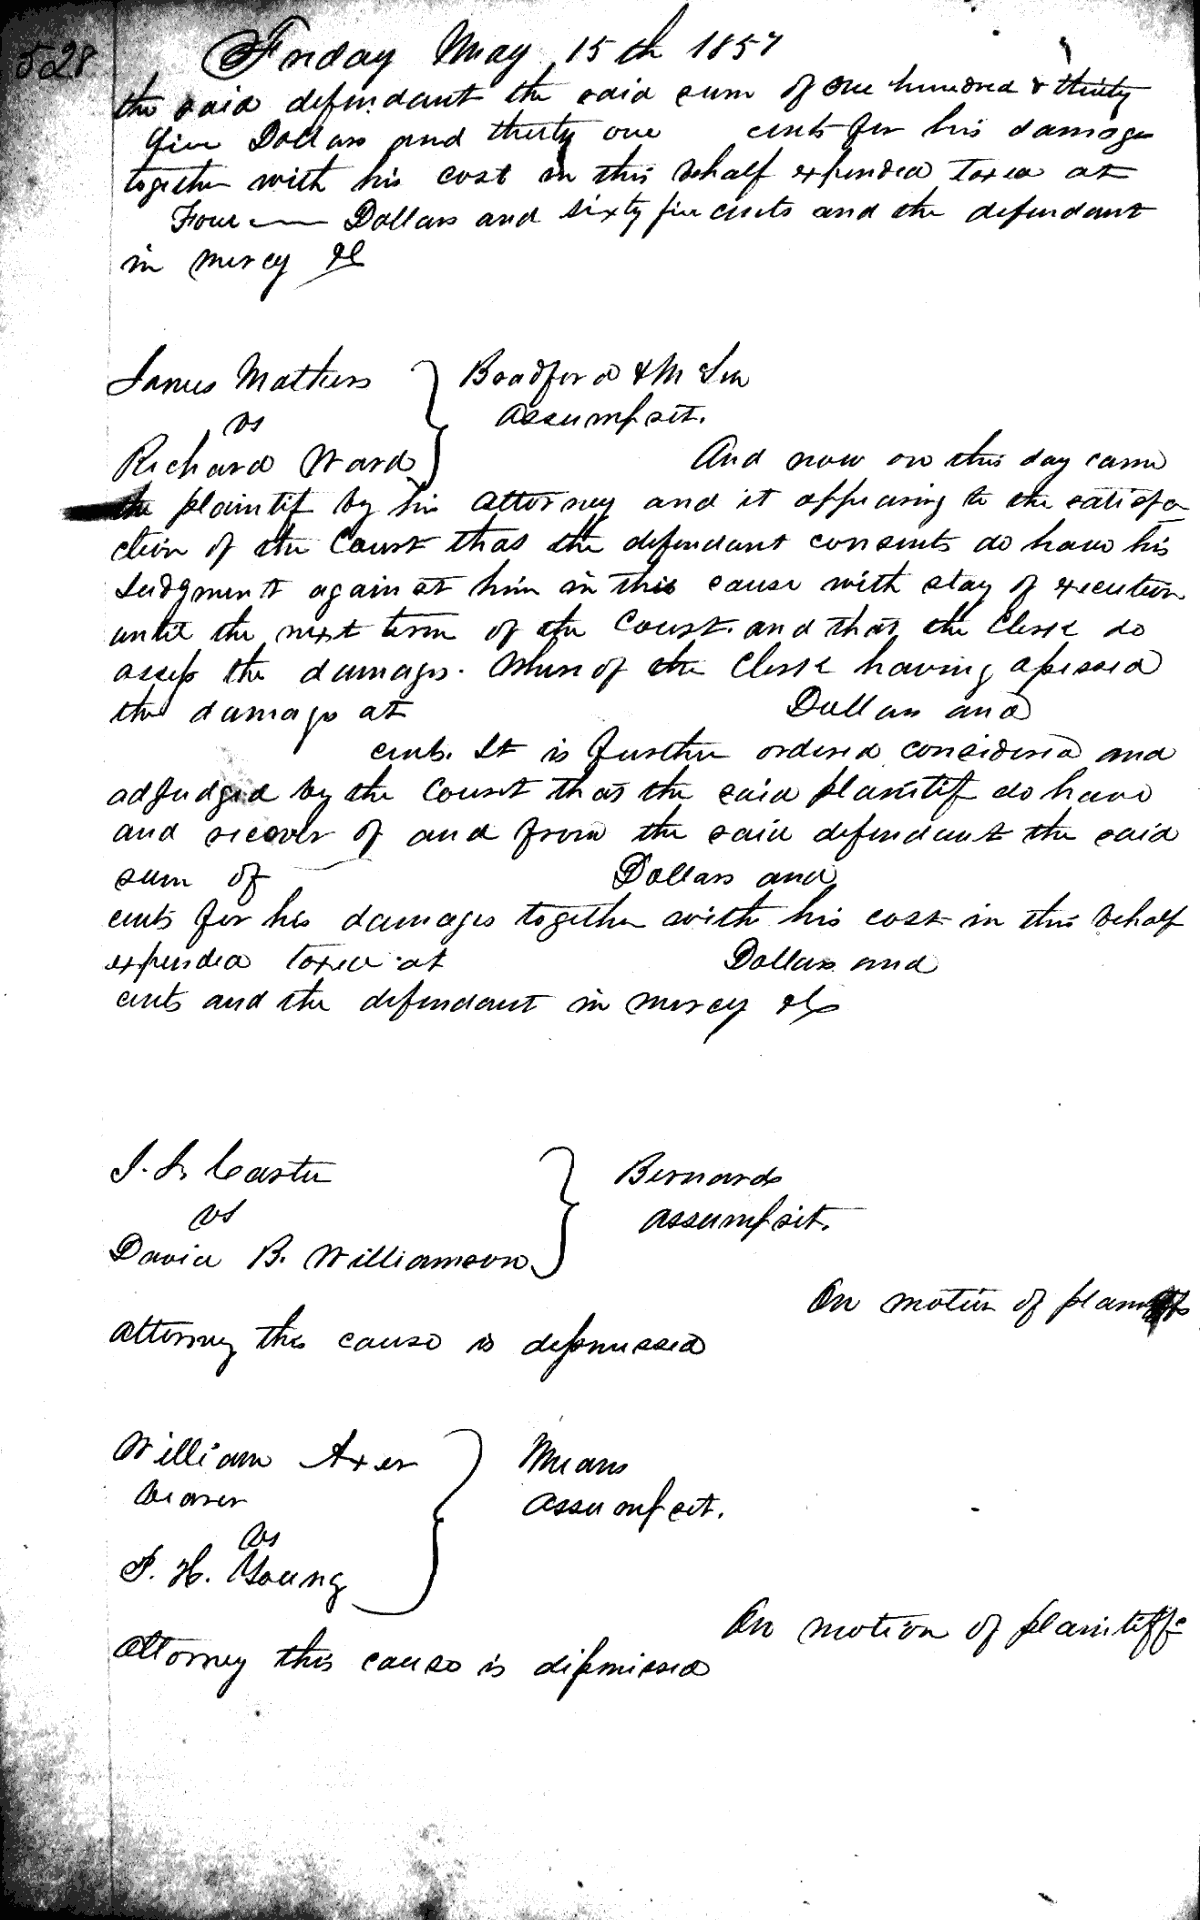 528
Friday May 15th 1857
the said defendant the said sum of one hundred & thirty
five Dollars and thirty one cents for his damage
together with his cost in this behalf expended taxed at
Four Dollars and sixty five cents and the defendant
in mercy &c
James Mathers
vs
Richard Ward
Bradford &
assumpsit.
And now on this day came
the plaintif by his attorney and it appearing to the satisfa
ction of the Court that the defendant consents do have his
Judgment against him in this cause with stay of execution
until the next term of the Court. and that the Clerk do
assess the damages. Whereof the Clerk having assessed
the damage at Dollars and
cents. It is further ordered considered and
adjudged by the Court that the said plaintif do have
and recover of and from the said defendant the said
sum of Dollars and
cents for his damages together with his cost in this behalf
expended taxed at Dollars and
cents and the defendant in mercy &c
Carter
vs
David B. Williamson
Bernard
assumpsit.
On motion of plaintiffs
attorney this cause is dismissed
William Axer
bearer
vs
H. Young
Means
assumpsit.
On motion of plaintiffs
attorney this cause is dismissed